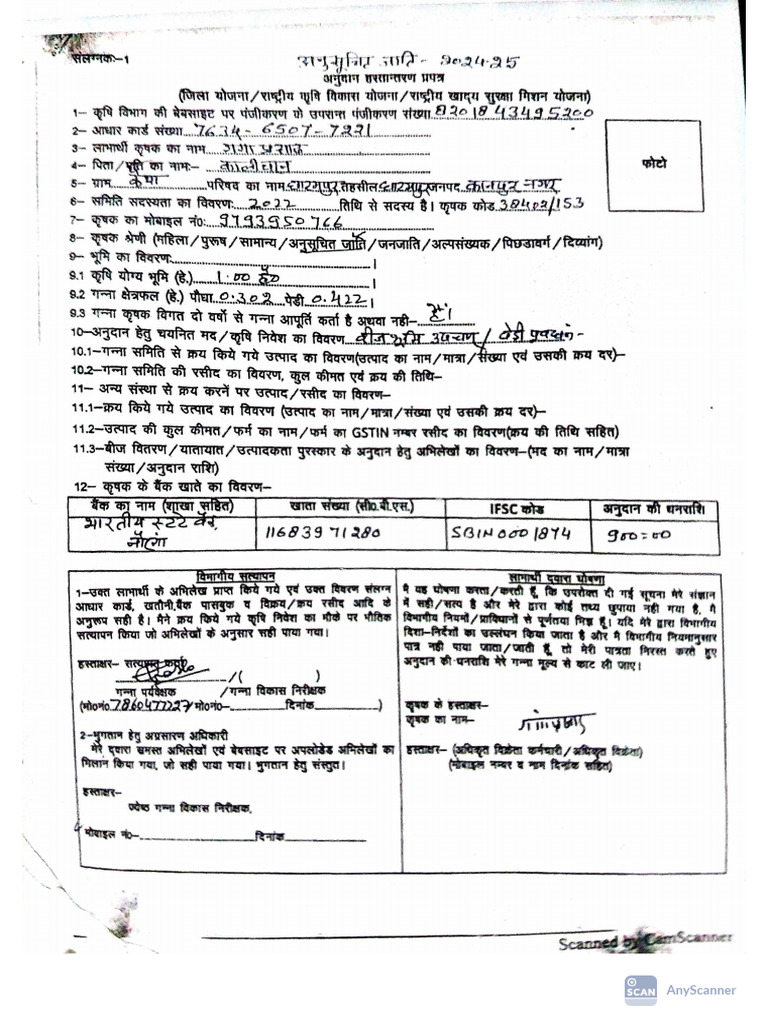 संलग्नक:-1
अनुसूचित जाति - 2024-25
अनुदान हस्तान्तरण प्रपत्र
(जिला योजना/राष्ट्रीय कृषि विकास योजना/राष्ट्रीय खाद्य सुरक्षा मिशन योजना)
1- कृषि विभाग की बेबसाइट पर पंजीकरण के उपरान्त पंजीकरण संख्या 8201843495200
2- आधार कार्ड संख्या 7634-6507-7221
3- लाभार्थी कृषक का नाम गंगा प्रसाद
4- पिता/पति का नाम:- कालीदीन
5- ग्राम परिषद का नाम घाटमपुर तहसील घाटमपुर जनपद कानपुर नगर
6- समिति सदस्यता का विवरण: 2022 तिथि से सदस्य है। कृषक कोड 38402/153
7- कृषक का मोबाइल नं0: 9793950766
8- कृषक श्रेणी (महिला/पुरूष/सामान्य/अनुसूचित जाति/जनजाति/अल्पसंख्यक/पिछडावर्ग/दिव्यांग)
9- भूमि का विवरण:
9.1 कृषि योग्य भूमि (हे.) 1.00 है0
9.2 गन्ना क्षेत्रफल (हे.) पौधा 0.302 पेडी 0.422
9.3 गन्ना कृषक विगत दो वर्षो से गन्ना आपूर्ति कर्ता है अथवा नही- हाँ।
10-अनुदान हेतु चयनित मद/कृषि निवेश का विवरण बीज भूमि उपचार / पेडी प्रबन्धन-
10.1-गन्ना समिति से क्रय किये गये उत्पाद का विवरण(उत्पाद का नाम/मात्रा/संख्या एवं उसकी क्रय दर)-
10.2-गन्ना समिति की रसीद का विवरण, कुल कीमत एवं क्रय की तिथि-
11- अन्य संस्था से क्रय करनें पर उत्पाद/रसीद का विवरण-
11.1-क्रय किये गये उत्पाद का विवरण (उत्पाद का नाम/मात्रा/संख्या एवं उसकी क्रय दर)-
11.2-उत्पाद की कुल कीमत/फर्म का नाम/फर्म का GSTIN नम्बर रसीद का विवरण(क्रय की तिथि सहित)
11.3-बीज वितरण/यातायात/उत्पादकता पुरस्कार के अनुदान हेतु अभिलेखों का विवरण-(मद का नाम/मात्रा
संख्या/अनुदान राशि)
12- कृषक के बैंक खाते का विवरण-
फोटो
बैंक का नाम (शाखा सहित) खाता संख्या (सी0बी0एस.) IFSC कोड अनुदान की धनराशि
भारतीय स्टेट बैंक, 11683971280 SBIN0001874 900=00
विभागीय सत्यापन
1-उक्त लाभार्थी के अभिलेख प्राप्त किये गये एवं उक्त विवरण संलग्न
आधार कार्ड, खतौनी,बैंक पासबुक व विक्रय/क्रय रसीद आदि के
अनुरूप सही है। मैने क्रय किये गये कृषि निवेश का मौके पर भौतिक
सत्यापन किया जो अभिलेखों के अनुसार सही पाया गया।
हस्ताक्षर- सत्यापन कर्ता
/( )
गन्ना पर्यवेक्षक /गन्ना विकास निरीक्षक
(मो0नं0 7860477227 मो0नं0- दिनांक )
2-भुगतान हेतु अग्रसारण अधिकारी
मेरे द्वारा समस्त अभिलेखों एवं बेबसाइट पर अपलोडेड अभिलेखों का
मिलान किया गया, जो सही पाया गया। भुगतान हेतु संस्तुत।
हस्ताक्षर-
ज्येष्ठ गन्ना विकास निरीक्षक,
मोबाइल नं0- दिनांक
लाभार्थी द्वारा घोषणा
मै यह घोषणा करता/करती हूँ, कि उपरोक्त दी गई सूचना मेरे संज्ञान
में सही/सत्य है और मेरे द्वारा कोई तथ्य छुपाया नही गया है, मै
विभागीय नियमों/प्राविधानों से पूर्णतया भिज्ञ हूँ। यदि मेरे द्वारा विभागीय
दिशा-निर्देशों का उल्लंघन किया जाता है और मै विभागीय नियमानुसार
पात्र नही पाया जाता/जाती हूँ, तो मेरी पात्रता निरस्त करते हुए
अनुदान की धनराशि मेरे गन्ना मूल्य से काट ली जाए।
कृषक के हस्ताक्षर-
कृषक का नाम- गंगाप्रसाद
हस्ताक्षर- (अधिकृत विक्रेता कर्मचारी/अधिकृत विक्रेता)
(मोबाइल नम्बर व नाम दिनांक सहित)
Scanned by CamScanner
SCAN AnyScanner